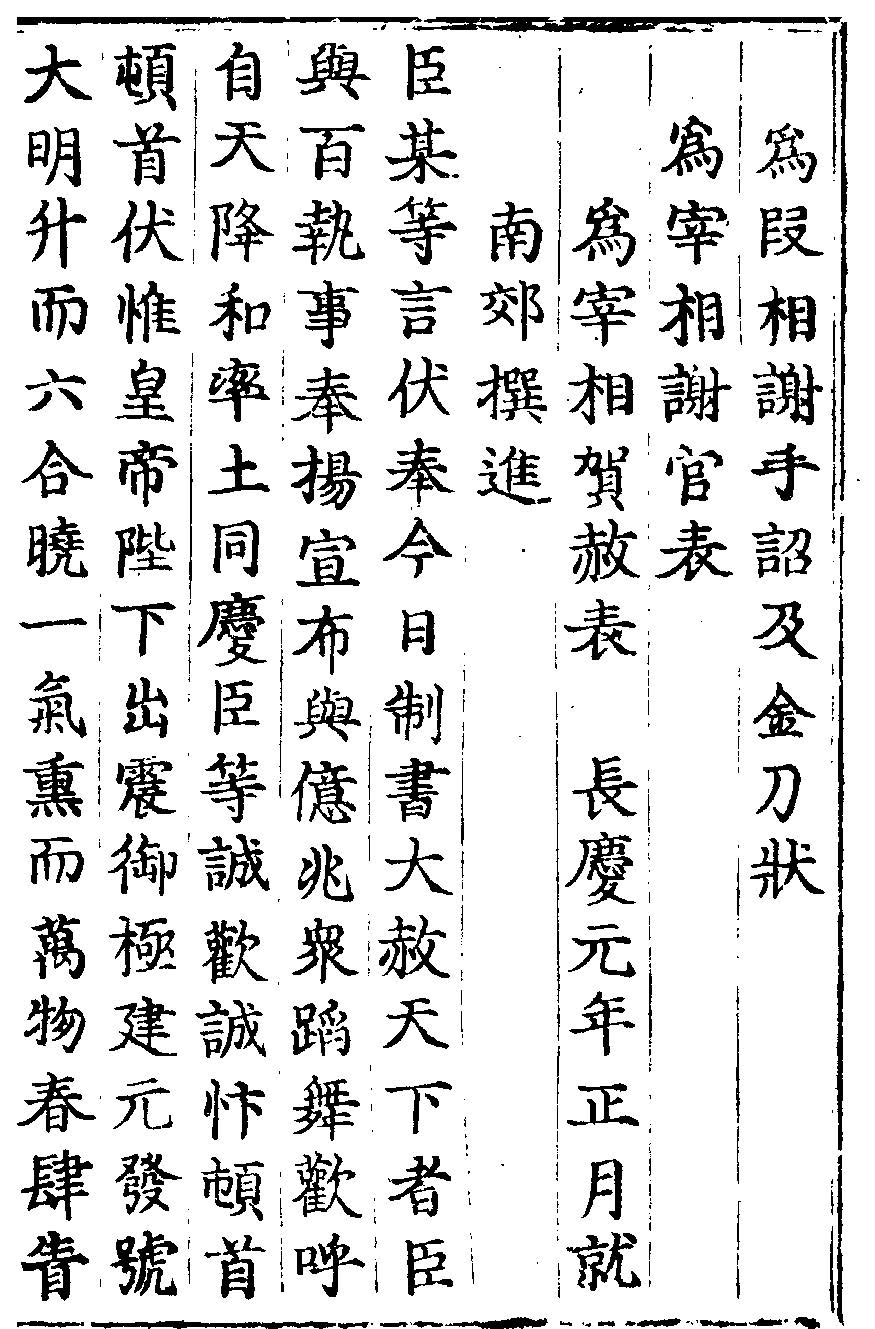 爲段相謝手詔及金刀狀
爲宰相謝官表
爲宰相賀赦表　長慶元年正月就
南郊撰進
臣某等言伏奉今日制書大赦天下者臣
與百執事奉揚宣布與億兆衆蹈舞歡呼
自天降和率土同慶臣等誠歡誠忭頓首
頓首伏惟皇帝陛下出震御極建元發號
大明升而六合曉一氣熏而萬物春肆眚